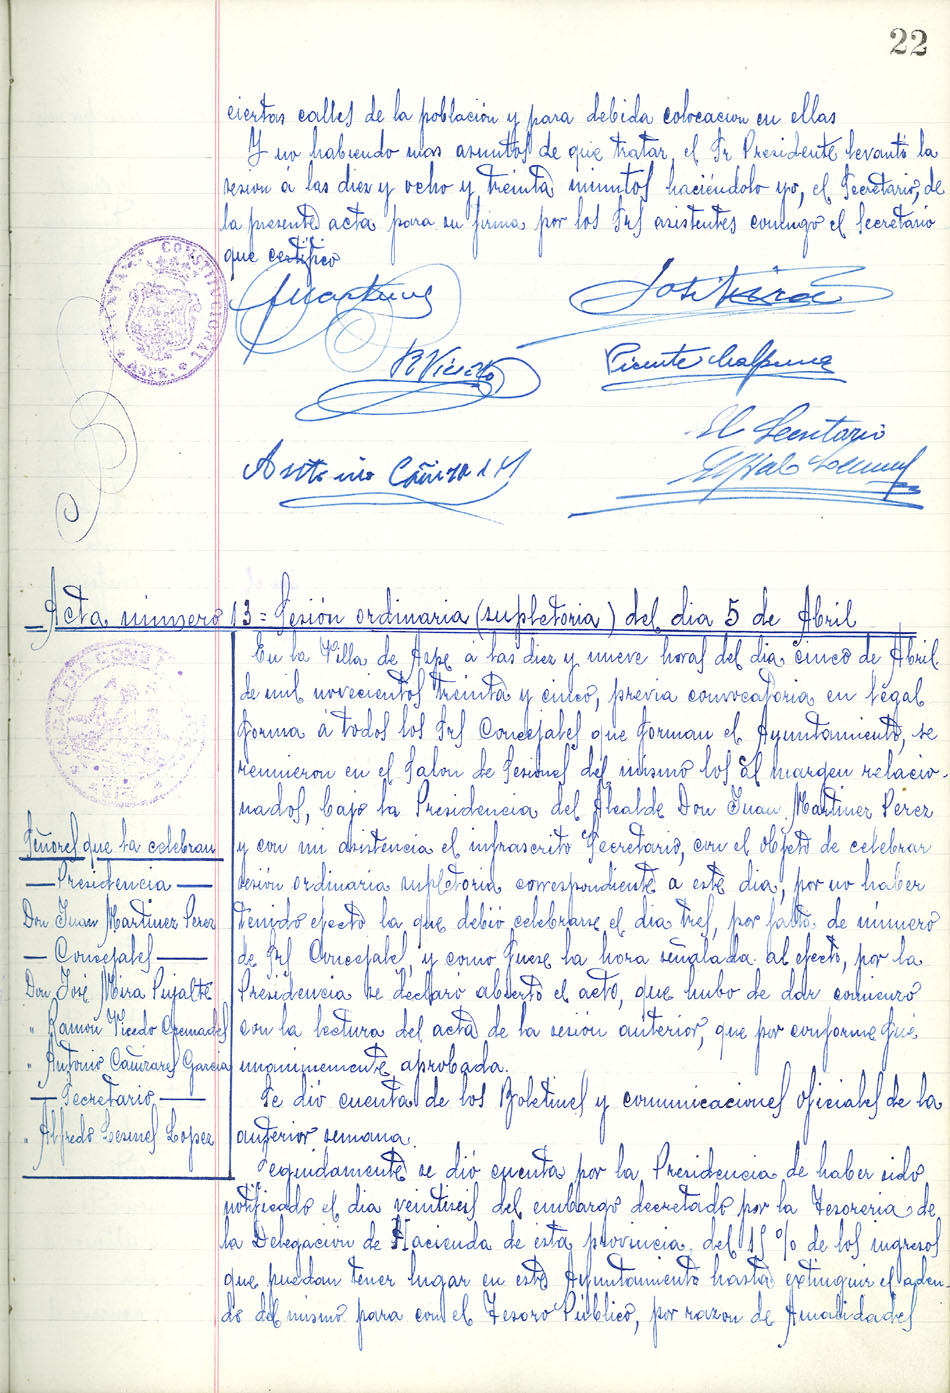 22
ciertas calles de la población y para debida colocacion en ellas
Y no habiendo mas asuntos de que tratar, el Sr Presidente levantó la
sesion á las diez y ocho y treinta minutos haciéndolo yo, el Secretario, de
la presente acta para su firma por los Srs asistentes conmigo el Secretario
que certifico
CONSTITUCIONAL
ASPE
JMartinez
José Mira
R Vicedo
Vicente
El Secretario
Antonio Cañizares
Acta número 13 = Sesión ordinaria (supletoria) del dia 5 de Abril
En la Villa de Aspe á las diez y nueve horas del dia cinco de Abril
de mil novecientos treinta y cinco, previa convocatoria en legal
forma á todos los Srs Concejales que forman el Ayuntamiento, se
reunieron en el Salon de Sesiones del mismo los al margen relacio-
nados, bajo la Presidencia del Alcalde Don Juan Martinez Perez
y con mi asistencia el infrascrito Secretario, con el objeto de celebrar
sesión ordinaria supletoria correspondiente a este dia, por no haber
tenido efecto la que debió celebrarse el dia tres, por falta de número
de Srs Concejales, y como fuese la hora señalada al efecto, por la
Presidencia se declaró abierto el acto, que hubo de dar comienzo
con la lectura del acta de la sesión anterior, que por conforme fué
unanimemente aprobada.
Se dió cuenta de los Boletines y comunicaciones oficiales de la
anterior semana.
Seguidamente se dió cuenta por la Presidencia de haber sido
notificado el dia veintiseis del embargo decretado por la Tesoreria de
la Delegacion de Hacienda de esta provincia, del 15 % de los ingresos
que puedan tener lugar en este Ayuntamiento hasta extinguir el adeu-
do del mismo para con el Tesoro Público, por razon de Anualidades
ASPE
Señores que la celebran
— Presidencia —
Don Juan Martinez Perez
— Concejales —
Don José Mira Pujalte
" Ramon Vicedo Cremades
" Antonio Cañizares Garcia
— Secretario —
" Alfredo Lesmes Lopez